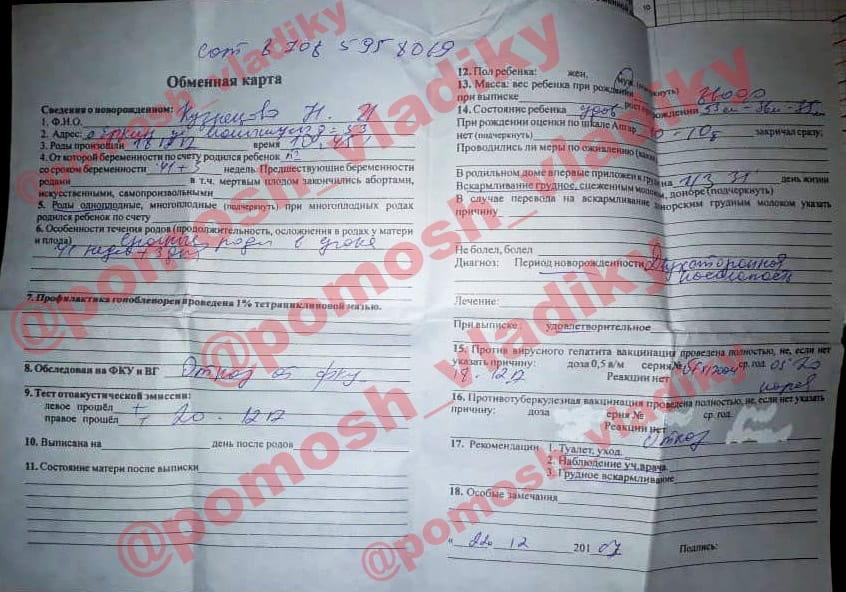 сот 8 708 595 8069
Обменная карта
Сведения о новорожденном:
1. Ф.И.О. Кузнецова Н. И
2. Адрес:
3. Роды произошли 18 12 17 время
4. От которой беременности по счету родился ребенок
со сроком беременности 41+3 недель. Предшествующие беременности
родами в т.ч. мертвым плодом закончились абортами,
искусственными, самопроизвольными
5. Роды одноплодные, многоплодные (подчеркнуть) при многоплодных родах
родился ребенок по счету
6. Особенности течения родов (продолжительность, осложнения в родах у матери
и плода) срочные роды в сроке
41 нед + 3 дня
7. Профилактика гонобленореи проведена 1% тетрациклиновой мазью.
8. Обследован на ФКУ и ВГ Отказ от фку
9. Тест отоакустической эмиссии:
левое прошёл +
правое прошёл + 20.12.17
10. Выписана на день после родов
11. Состояние матери после выписки
12. Пол ребенка: жен, муж. (подчеркнуть)
13. Масса: вес ребенка при рождении
при выписке рост при рождении
14. Состояние ребенка удов
При рождении оценки по шкале Апгар закричал сразу;
нет (подчеркнуть)
Проводились ли меры по оживлению
В родильном доме впервые приложен к груди на день жизни
Вскармливание грудное, сцеженным молоком, донорское (подчеркнуть)
В случае перевода на вскармливание донорским грудным молоком указать
причину
Не болел, болел
Диагноз: Период новорожденности Двухсторонняя
косолапость
Лечение:
При выписке: удовлетворительное
15. Против вирусного гепатита вакцинация проведена полностью, не, если нет
указать причину: доза 0,5 в/м серия № ср. год. 05.20
18.12.17 Реакции нет
16. Противотуберкулезная вакцинация проведена полностью, не, если нет указать
причину: доза серия № ср. год.
Реакции нет
Отказ
17. Рекомендации 1. Туалет, уход.
2. Наблюдение уч.врача.
3. Грудное вскармливание
18. Особые замечания
« 22 » 12 201 Подпись:
@pomosh_vladiky
@pomosh_vladiky
@pomosh_vladiky
@pomosh_vladiky
@pomosh_vladiky